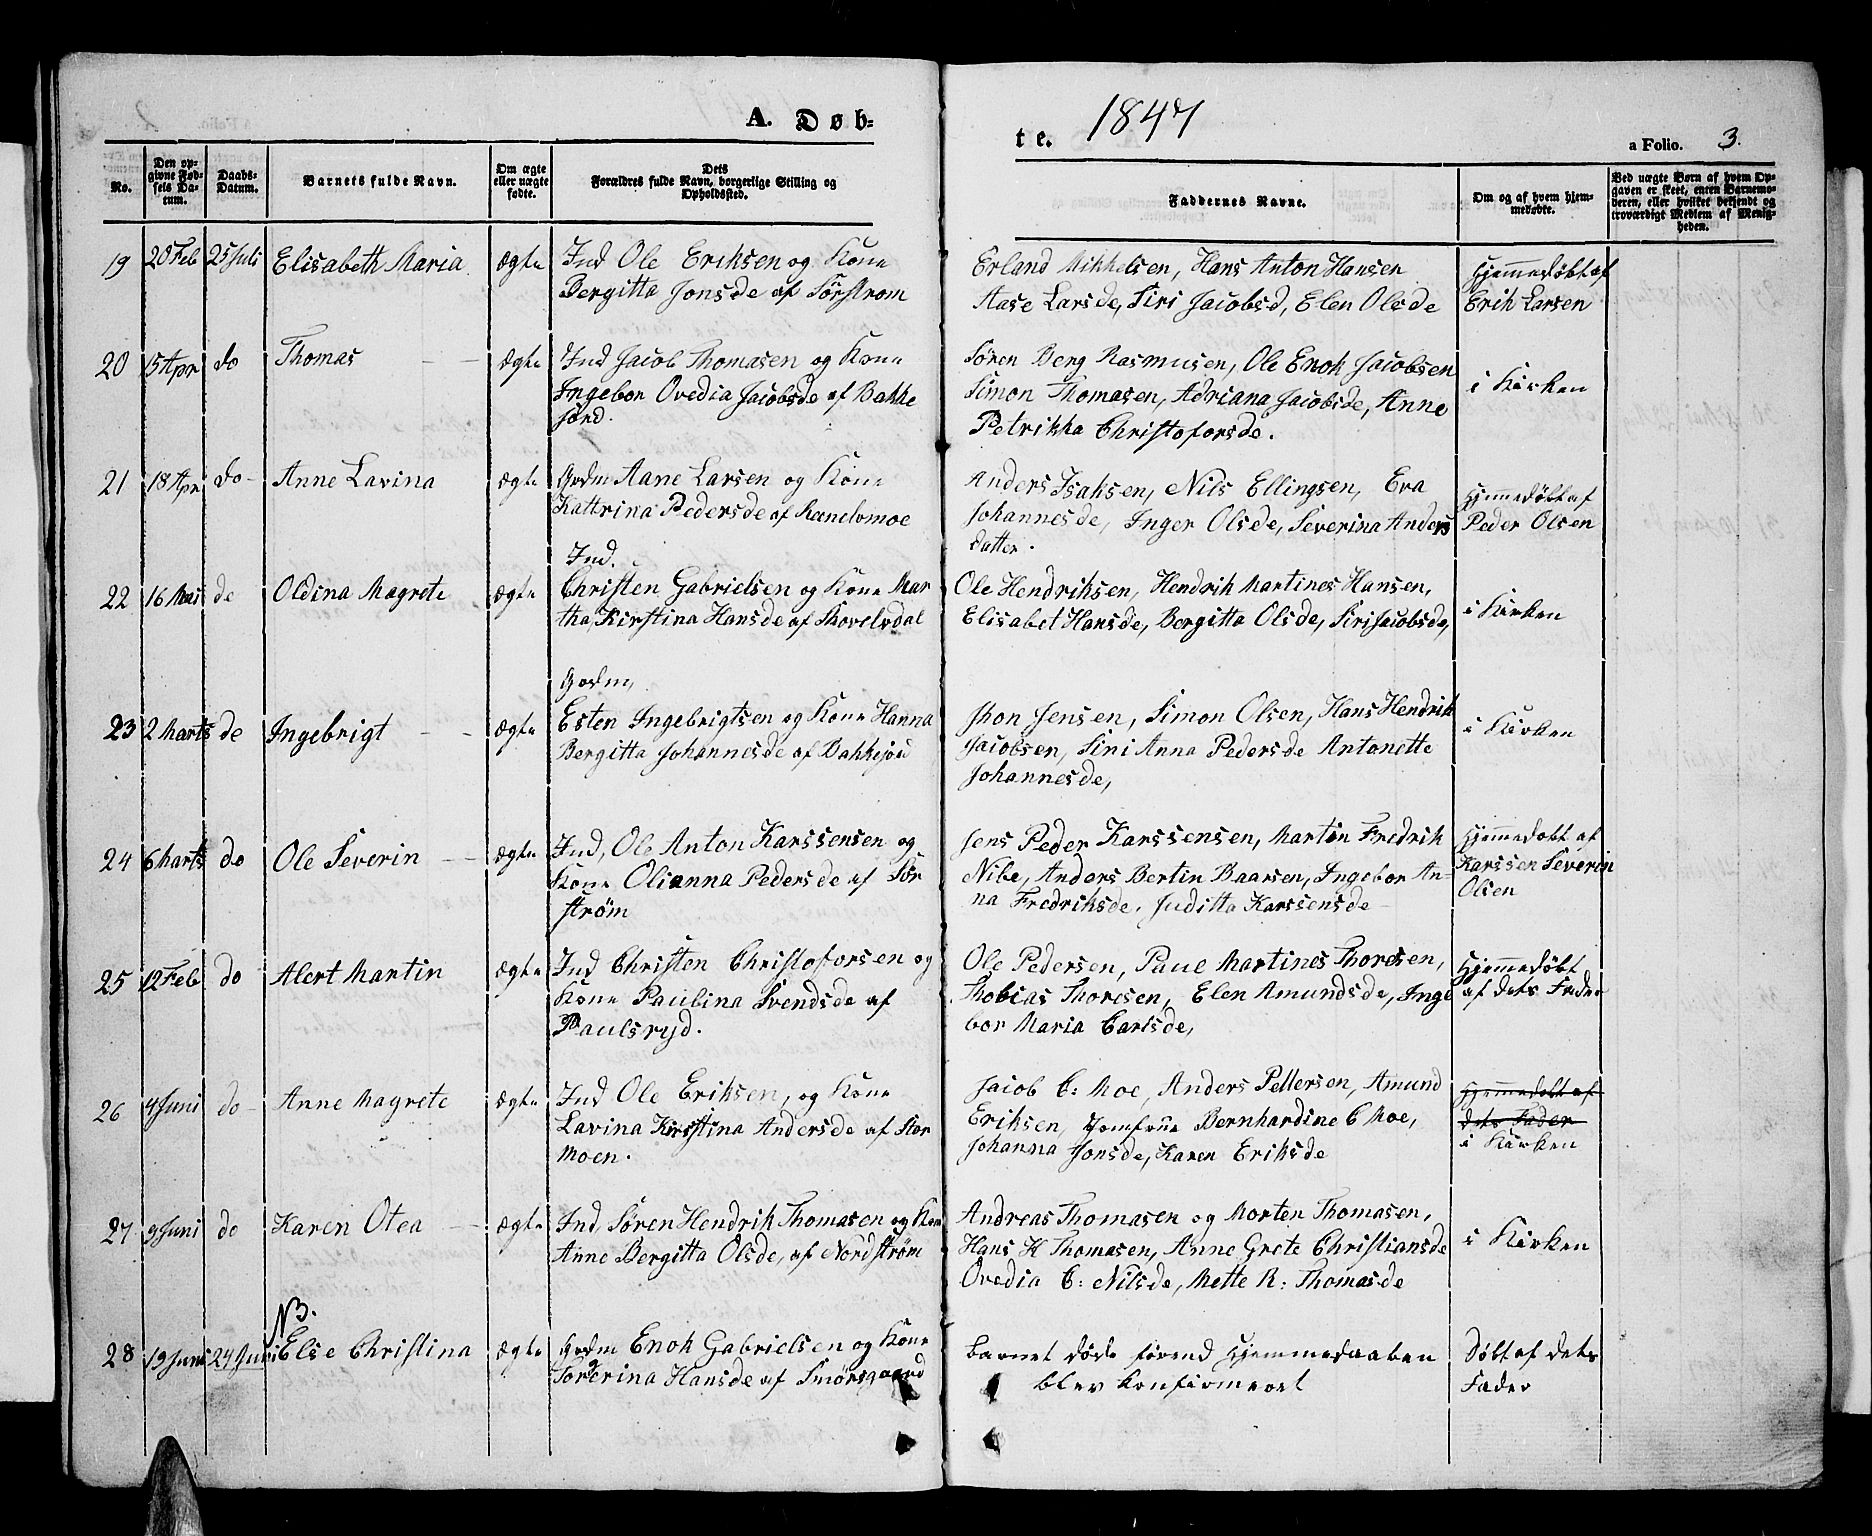 A. Døb-
te. 1847
a Folio. 3.
No.
Den op-
givne Fød-
sels Da-
tum.
Daabs-
Datum.
Barnets fulde Navn.
Om ægte
eller uægte
fødte.
Dets
Forældres fulde Navn, borgerlige Stilling og
Opholdssted.
Faddernes Navne.
Om og af hvem hjem-
medøbte.
Ved uægte Børn af hvem Op-
gaven er skeet, enten Barnemo-
deren, eller hvilket bekjendt og
troværdigt Medlem af Menig-
heden.
19 20 Feb 25 Juli Elisabeth Maria ægte Ind Ole Eriksen og Kone
Bergitta Jonsde af Sørstrom
Erland Mikkelsen, Hans Anton Hansen
Aase Larsde, Siri Jacobsd, Elen Olsde
Hjemmedøbt af
Erik Larsen
20 15 Apr do Thomas ægte Ind Jacob Thomasen og Kone
Ingebor Ovedia Jacobsde af Bakke
jord.
Søren Berg Rasmusen, Ole Enok Jacobsen
Simon Thomasen, Adriana Jacobsde, Anne
Petrikka Christoforsde.
i Kirken
21 18 Apr do Anne Lavina ægte Gvdm Aane Larsen og Kone
Kattrina Pedersde af
Anders Isaksen, Nils Ellingsen, Eva
Johannesde, Inger Olsde, Severina Anders
datter.
Hjemmedøbt af
Peder Olsen
22 16 Mai do Oldina Magrete ægte Ind.
Christen Gabrielsen og Kone Mar
tha Kirstina Hansde af Skovelvdal
Ole Hendriksen, Hendrik Martines Hansen,
Elisabet Hansde, Bergitta Olsde, Siri Jacobsde,
i Kirken
23 2 Marts do Ingebrigt ægte Gvdm,
Esten Ingebrigtsen og Kone Hanna
Bergitta Johannesde af Bakkejord
Jhon Jensen, Simon Olsen, Hans Hendrik
Jacobsen, Sini Anna Pedersde Antonette
Johannesde,
i Kirken
24 6 Marts do Ole Severin ægte Ind, Ole Anton Karssensen og
Kone Olianna Pedersde af Sør
strøm
Jens Peder Karssensen, Martin Fredrik
Nibe, Anders Bertin Baarsen, Ingebor An-
na Fredriksde. Juditta Karssensde
Hjemmedøbt af
Karssen Severin
Olsen
25 12 Feb do Alert Martin ægte Ind Christen Christoforsen og
Kone Paulina Svendsde af
Paulsryd.
Ole Pedersen, Paul Martines Thoresen,
Thobias Thoresen, Elen Amundsde, Inge
bor Maria Carlsde,
Hjemmedøbt
af dets Fader
26 4 Juni do Anne Magrete ægte Ind Ole Eriksen, og Kone
Lavina Kirstina Andersde af Stor
moen.
Jacob C: Moe, Anders Pellersen, Amund
Eriksen, Jomfrue Bernhardine C Moe,
Johanna Jonsde, Karen Eriksde
Hjemmedøbt af
dets Fader
i Kirken
27 9 Juni do Karen Otea ægte Ind Søren Hendrik Thomasen og Kone
Anne Bergitta Olsde, af Nordstrøm
Andreas Thomasen og Morten Thomasen,
Hans H Thomasen, Anne Grete Christiansde
Ovedia C: Nilsde, Mette R: Thomasde
i Kirken
NB.
28 19 Juni 24 Juni Else Christina ægte Gvdm Enok Gabrielsen og Kone
Sørerina Hansde af Smørsgaard
Barnet døde førend Hjemmedaaben
blev konfirmeret
Døbt af dets
Fader